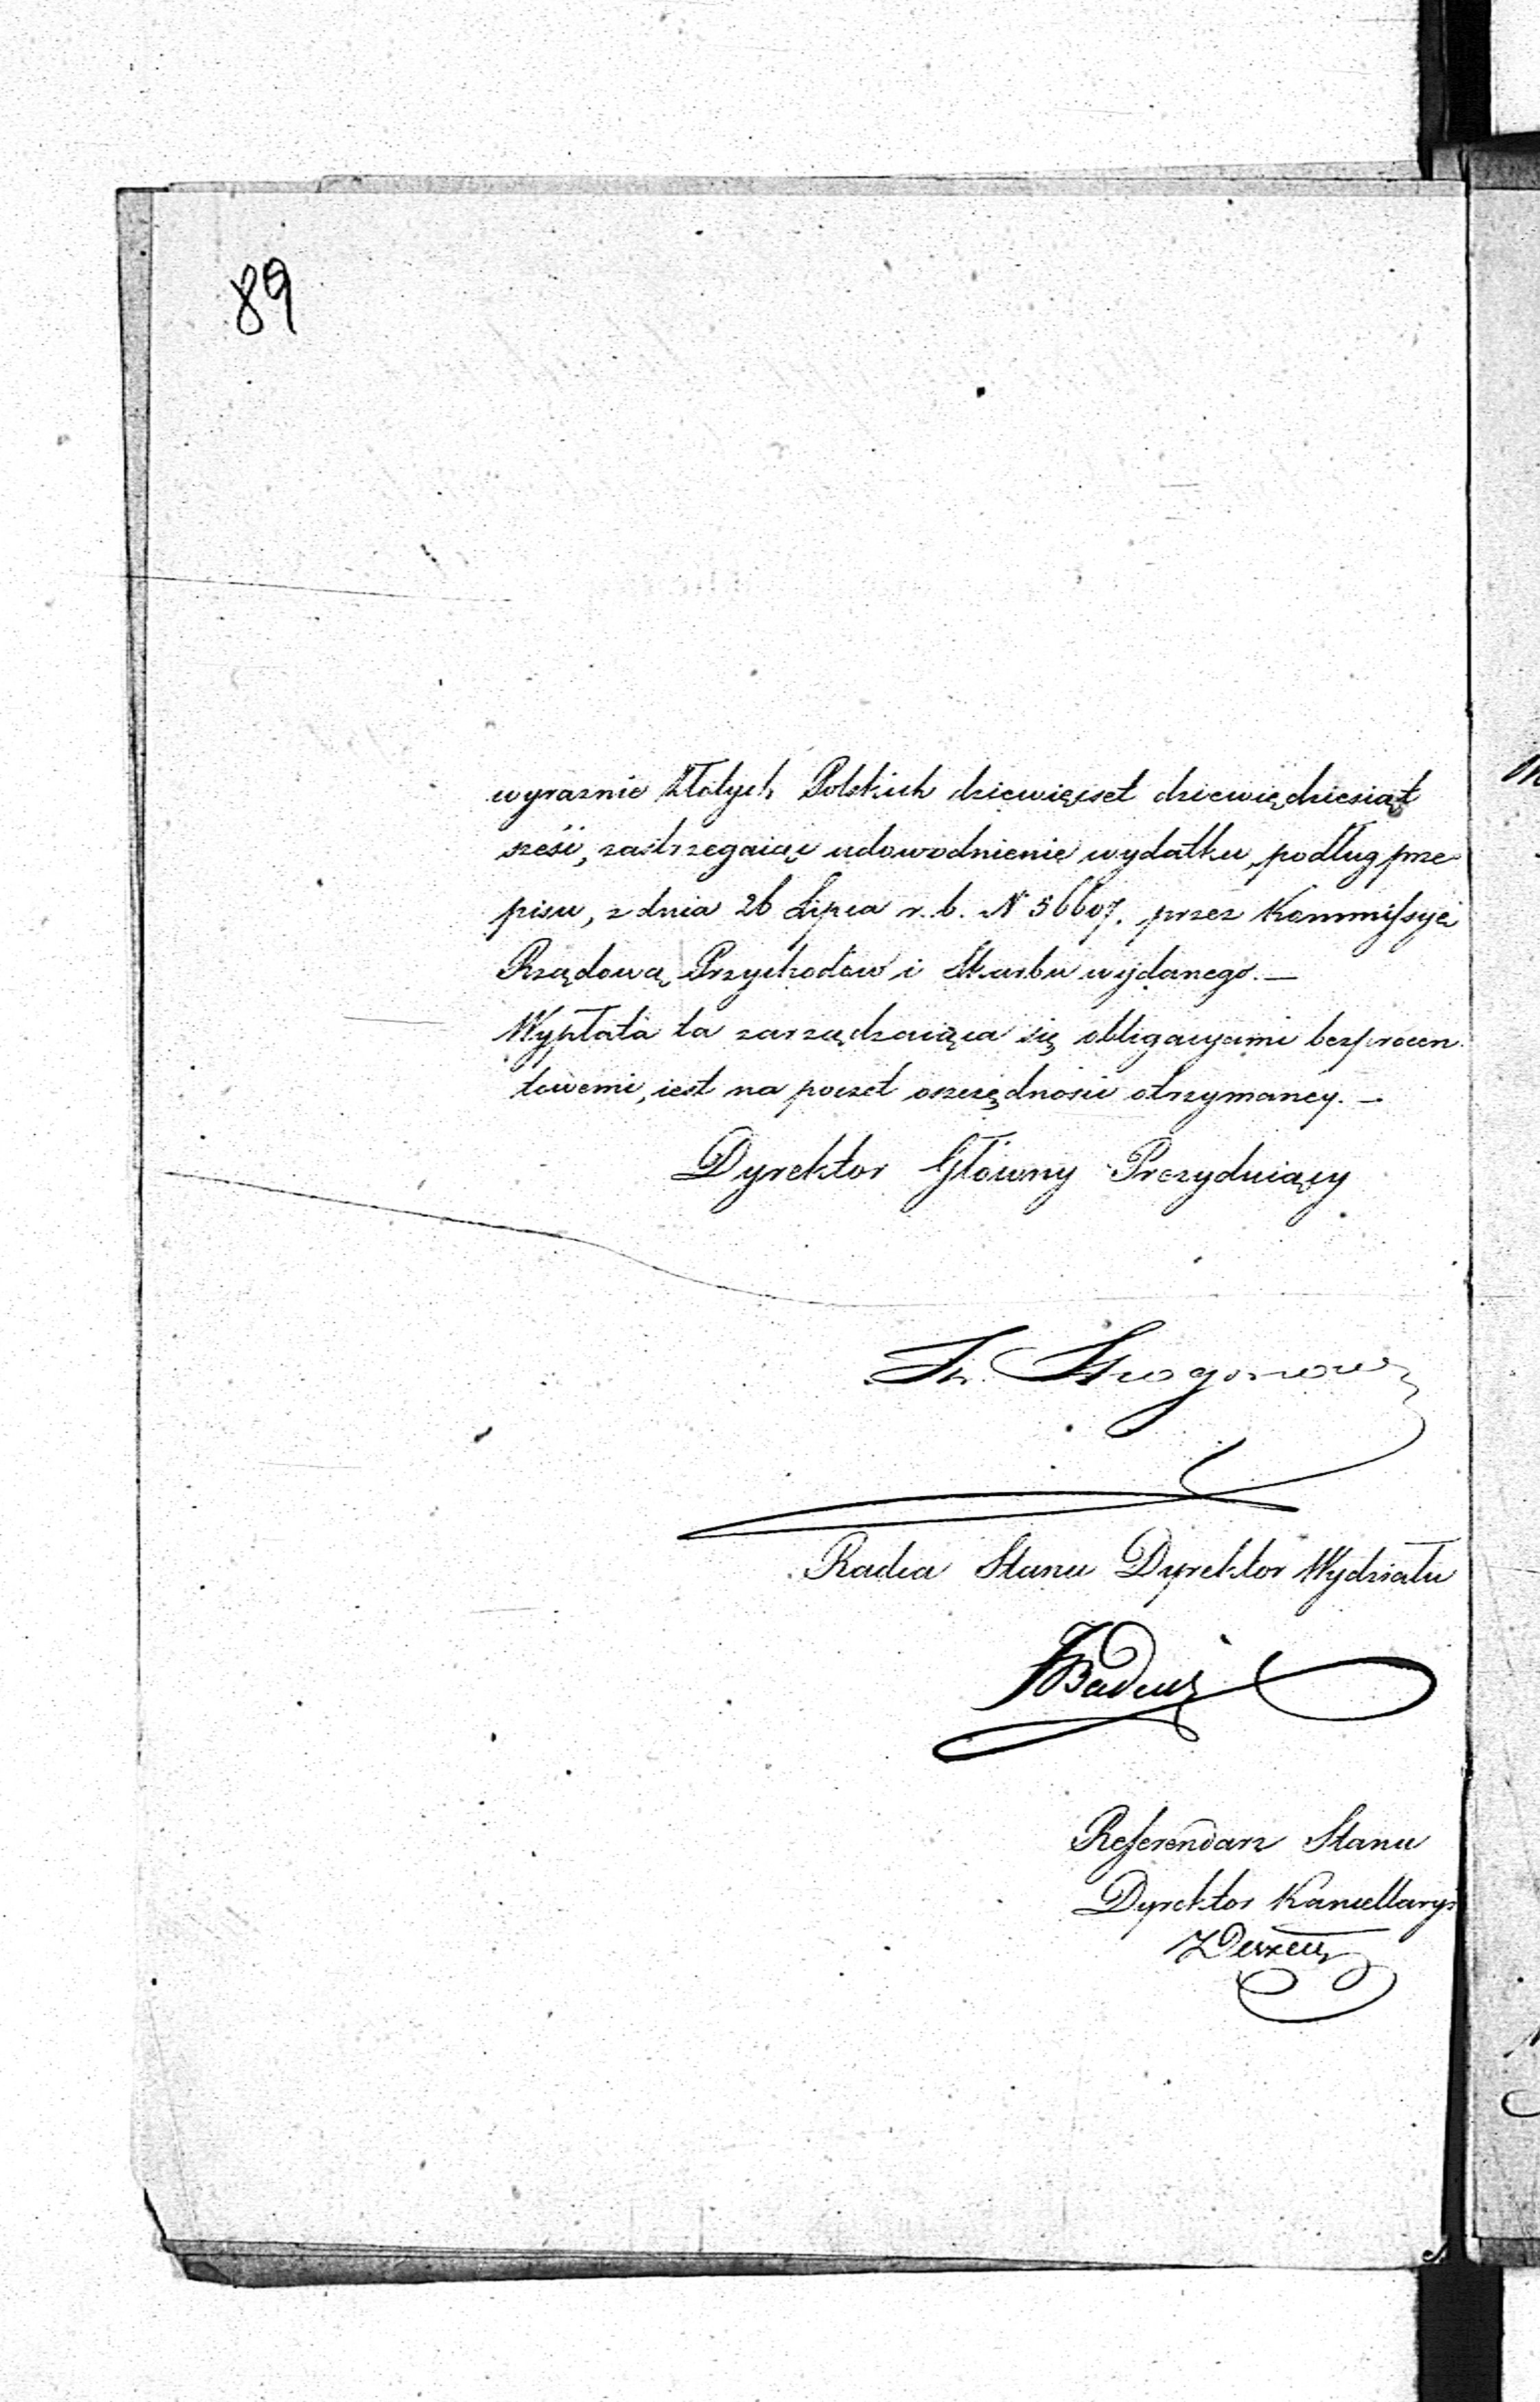 89
wyraznie Złotych Polskich dziewięćset dziewiędziesiąt
sześć, zastrzegaiąc udowodnienie wydatku, podług prze-
pisu, z dnia 26 Lipca r. b. N 56607. przez Kommissyą
Rządową Przychodów i Skarbu wydanego. —
Wypłata ta zarządzaiąca się obligacyami bezprocen-
towemi, iest na poczet oszczędności otrzymaney. —
Dyrektor Główny Prezyduiący
Radca Stanu Dyrektor Wydziału
Badeni
Referendarz Stanu
Dyrektor Kancellaryi